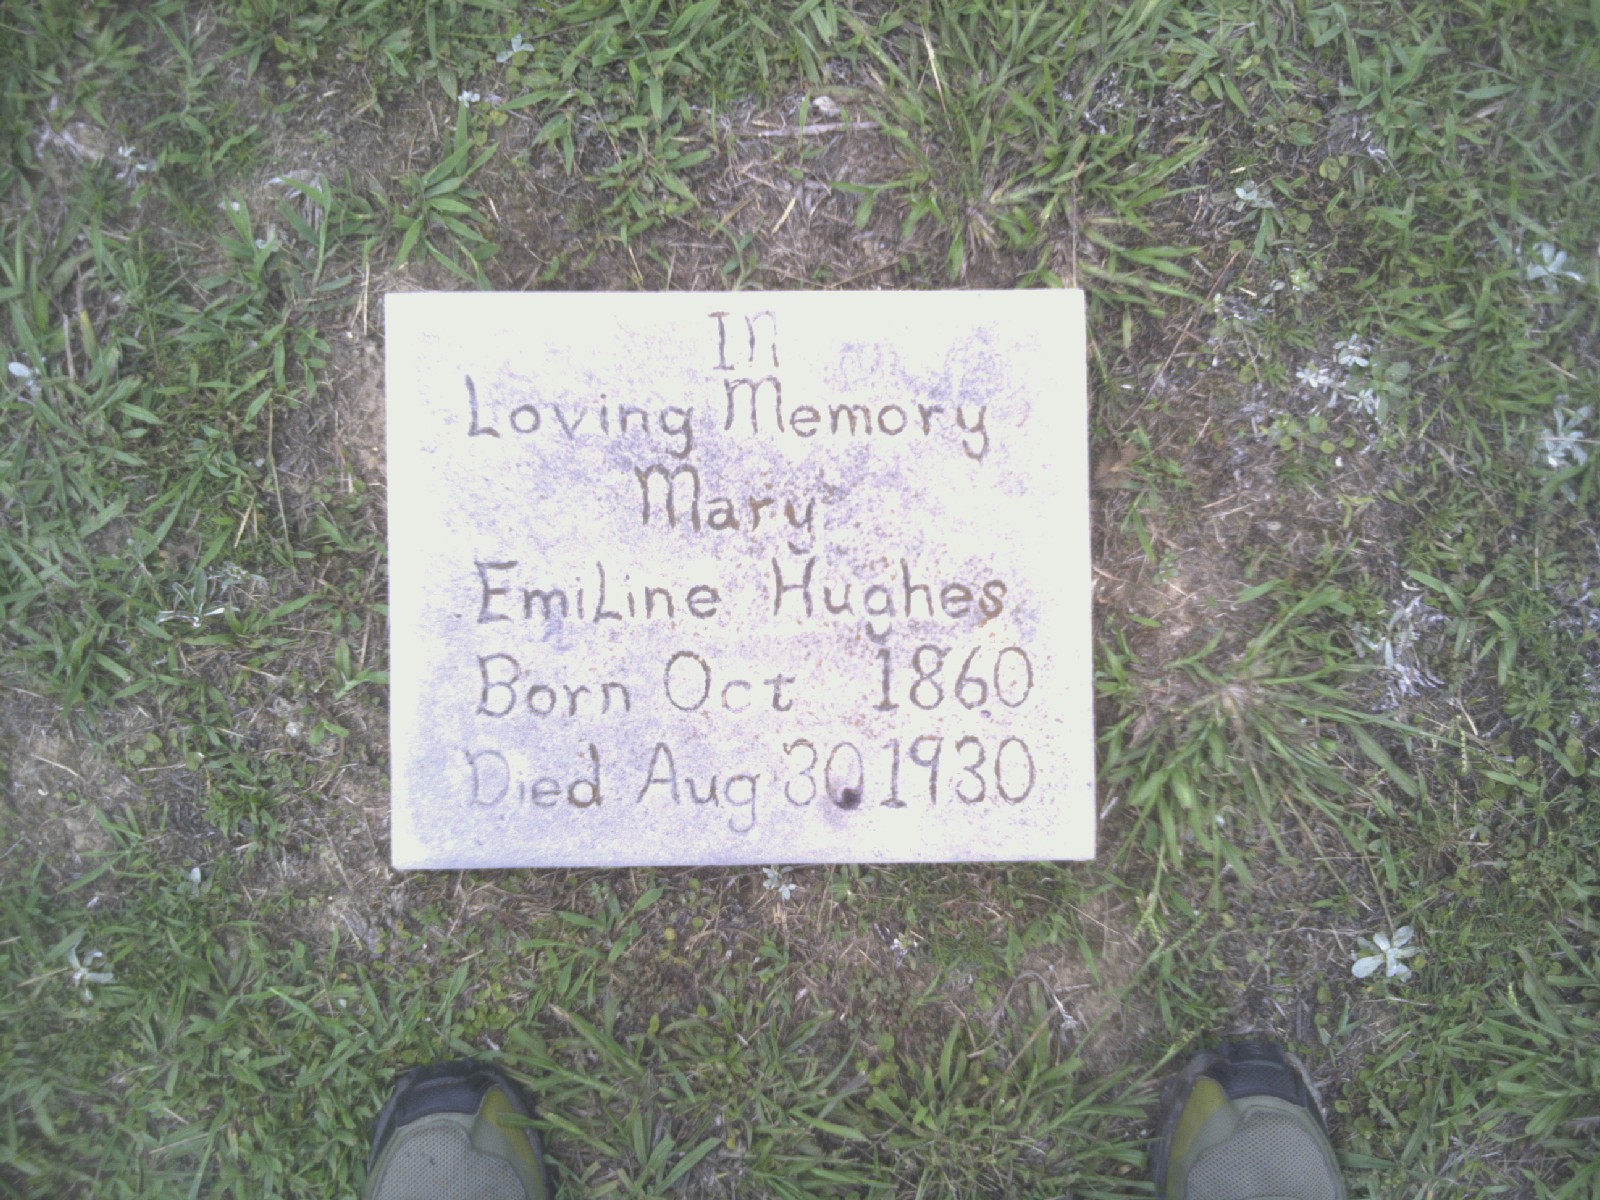 In
Loving Memory
Mary
EmiLine Hughes
Born Oct 1860
Died Aug 30 1930